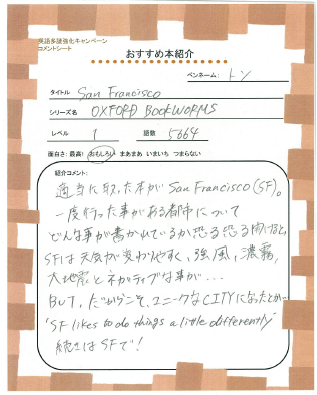 英語多読強化キャンペーン
コメントシート
おすすめ本紹介
ペンネーム: トン
タイトル San Francisco
シリーズ名 OXFORD BOOKWORMS
レベル 1 語数 5664
面白さ: 最高! おもしろい まあまあ いまいち つまらない
紹介コメント:
適当に取った本が San Francisco (SF)。
一度行った事がある都市について
どんな事が書かれているか恐る恐る開けると、
SFは天気が変わりやすく、強風、濃霧、
大地震とネガティブな事が・・・
BUT, だからこそ、ユニークなCITYになったとか…
"SF likes to do things a little differently"
続きはSFで!